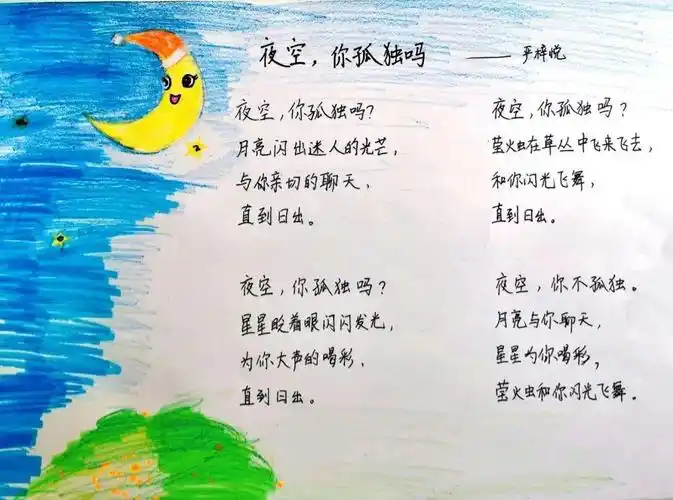 夜空，你孤独吗 —— 严梓悦
夜空，你孤独吗？
月亮闪出迷人的光芒，
与你亲切的聊天，
直到日出。
夜空，你孤独吗？
星星眨着眼闪闪发光，
为你大声的喝彩，
直到日出。
夜空，你孤独吗？
萤火虫在草丛中飞来飞去，
和你闪光飞舞，
直到日出。
夜空，你不孤独。
月亮与你聊天，
星星为你喝彩，
萤火虫和你闪光飞舞。